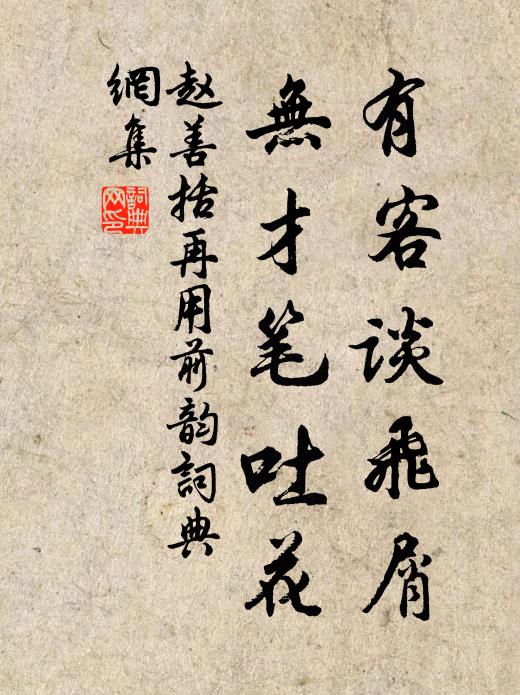 有客談飛屑
無才笔吐花
赵善括再用前韵詞典
網集
詞典
网印